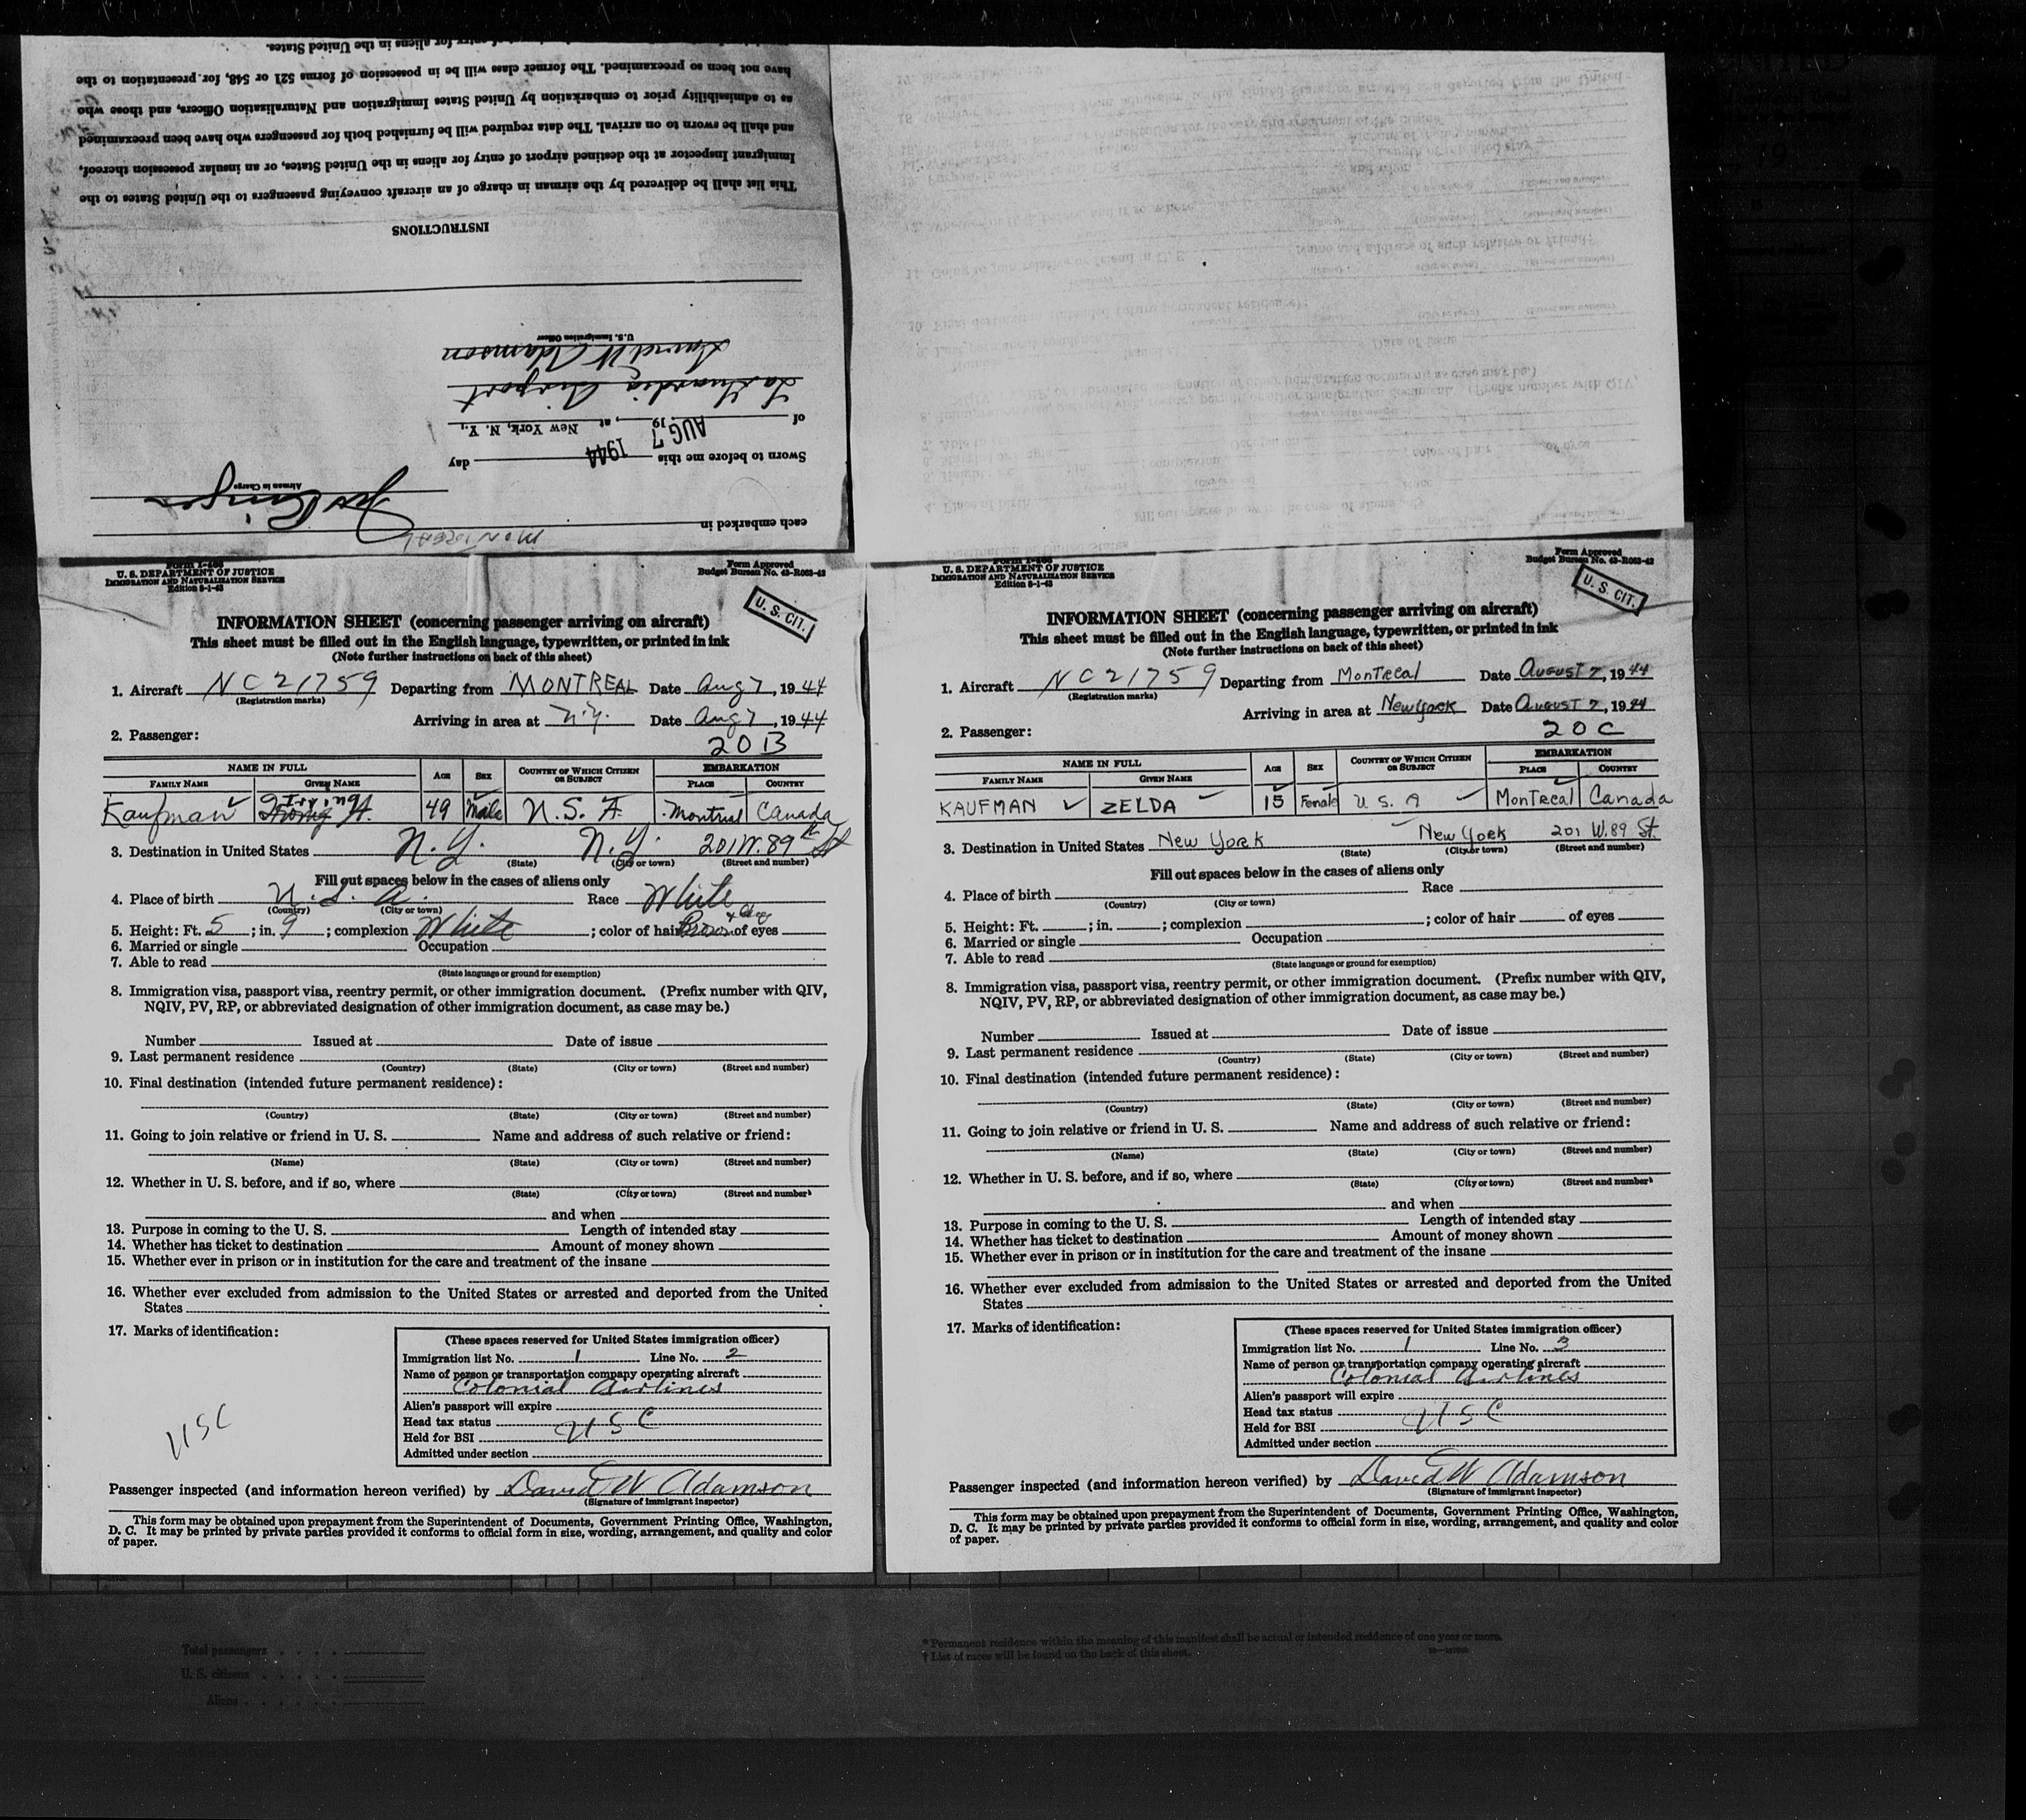 This list shall be delivered by the airman in charge of an aircraft conveying passengers to the United States to the
Immigrant Inspector at the destined airport of entry for aliens in the United States, or an insular possession thereof,
and shall be sworn to on arrival. The data required will be furnished both for passengers who have been preexamined
as to admissibility prior to embarkation by United States Immigration and Naturalization Officers, and those who
have not been so preexamined. The former class will be in possession of forms 521 or 548, for presentation to the
of entry for aliens in the United States.
INSTRUCTIONS
each embarked in MONTREAL
Airman in Charge
Sworn to before me this AUG 7 1944 day
of , 19 , at New York, N. Y.,
LaGuardia Airport
David W Adamson
U.S. Immigration Officer
U. S. DEPARTMENT OF JUSTICE
IMMIGRATION AND NATURALIZATION SERVICE
Edition 8-1-43
Form Approved
Budget Bureau No. 43-R063-42
U. S. CIT.
INFORMATION SHEET (concerning passenger arriving on aircraft)
This sheet must be filled out in the English language, typewritten, or printed in ink
(Note further instructions on back of this sheet)
1. Aircraft NC21759 Departing from MONTREAL Date Aug 7, 1944
(Registration marks)
Arriving in area at N.Y. Date Aug 7, 1944
2. Passenger: 20B
NAME IN FULL AGE SEX COUNTRY OF WHICH CITIZEN OR SUBJECT EMBARKATION
FAMILY NAME GIVEN NAME PLACE COUNTRY
Kaufman Irving A. 49 Male U.S.A. Montreal Canada
3. Destination in United States N.Y. N.Y. 201 W. 89th St
(State) (City or town) (Street and number)
Fill out spaces below in the cases of aliens only
4. Place of birth U.S.A. Race White
(Country) (City or town)
5. Height: Ft. 5; in. 9; complexion White; color of hair Brown of eyes
6. Married or single Occupation
7. Able to read
(State language or ground for exemption)
8. Immigration visa, passport visa, reentry permit, or other immigration document. (Prefix number with QIV,
NQIV, PV, RP, or abbreviated designation of other immigration document, as case may be.)
Number Issued at Date of issue
9. Last permanent residence
(Country) (State) (City or town) (Street and number)
10. Final destination (intended future permanent residence):
(Country) (State) (City or town) (Street and number)
11. Going to join relative or friend in U. S. Name and address of such relative or friend:
(Name) (State) (City or town) (Street and number)
12. Whether in U. S. before, and if so, where
(State) (City or town) (Street and number)
and when
13. Purpose in coming to the U. S. Length of intended stay
14. Whether has ticket to destination Amount of money shown
15. Whether ever in prison or in institution for the care and treatment of the insane
16. Whether ever excluded from admission to the United States or arrested and deported from the United
States
17. Marks of identification:
USC
(These spaces reserved for United States immigration officer)
Immigration list No. 1 Line No. 2
Name of person or transportation company operating aircraft
Colonial Airlines
Alien's passport will expire
Head tax status
Held for BSI USC
Admitted under section
Passenger inspected (and information hereon verified) by David W Adamson
(Signature of immigrant inspector)
This form may be obtained upon prepayment from the Superintendent of Documents, Government Printing Office, Washington,
D. C. It may be printed by private parties provided it conforms to official form in size, wording, arrangement, and quality and color
of paper.
U. S. DEPARTMENT OF JUSTICE
IMMIGRATION AND NATURALIZATION SERVICE
Edition 8-1-43
Form Approved
Budget Bureau No. 43-R063-42
U. S. CIT.
INFORMATION SHEET (concerning passenger arriving on aircraft)
This sheet must be filled out in the English language, typewritten, or printed in ink
(Note further instructions on back of this sheet)
1. Aircraft NC21759 Departing from Montreal Date August 7, 1944
(Registration marks)
Arriving in area at New York Date August 7, 1944
2. Passenger: 20C
NAME IN FULL AGE SEX COUNTRY OF WHICH CITIZEN OR SUBJECT EMBARKATION
FAMILY NAME GIVEN NAME PLACE COUNTRY
KAUFMAN ZELDA 15 Female U S A Montreal Canada
3. Destination in United States New York New York 201 W. 89 St.
(State) (City or town) (Street and number)
Fill out spaces below in the cases of aliens only
4. Place of birth Race
(Country) (City or town)
5. Height: Ft. ; in. ; complexion ; color of hair of eyes
6. Married or single Occupation
7. Able to read
(State language or ground for exemption)
8. Immigration visa, passport visa, reentry permit, or other immigration document. (Prefix number with QIV,
NQIV, PV, RP, or abbreviated designation of other immigration document, as case may be.)
Number Issued at Date of issue
9. Last permanent residence
(Country) (State) (City or town) (Street and number)
10. Final destination (intended future permanent residence):
(Country) (State) (City or town) (Street and number)
11. Going to join relative or friend in U. S. Name and address of such relative or friend:
(Name) (State) (City or town) (Street and number)
12. Whether in U. S. before, and if so, where
(State) (City or town) (Street and number)
and when
13. Purpose in coming to the U. S. Length of intended stay
14. Whether has ticket to destination Amount of money shown
15. Whether ever in prison or in institution for the care and treatment of the insane
16. Whether ever excluded from admission to the United States or arrested and deported from the United
States
17. Marks of identification:
(These spaces reserved for United States immigration officer)
Immigration list No. 1 Line No. 3
Name of person or transportation company operating aircraft
Colonial Airlines
Alien's passport will expire
Head tax status USC
Held for BSI
Admitted under section
Passenger inspected (and information hereon verified) by David W Adamson
(Signature of immigrant inspector)
This form may be obtained upon prepayment from the Superintendent of Documents, Government Printing Office, Washington,
D. C. It may be printed by private parties provided it conforms to official form in size, wording, arrangement, and quality and color
of paper.
Total passengers
U. S. citizens
Aliens
* Permanent residence within the meaning of this manifest shall be actual or intended residence of one year or more.
† List of races will be found on the back of this sheet.